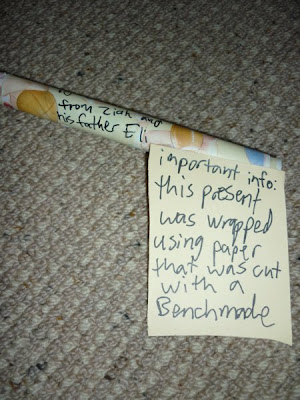 from Ziah and
his father Eli
important info:
this present
was wrapped
using paper
that was cut
with a
Benchmade